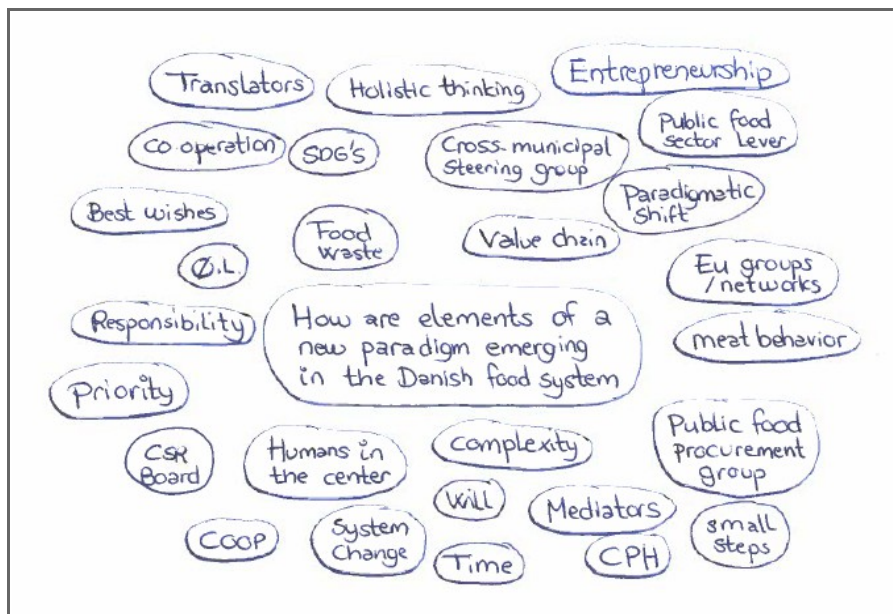 Translators
Holistic thinking
Entrepreneurship
Co operation
SDG's
Cross-municipal
Steering group
Public food
sector lever
Best wishes
Food
waste
Value chain
Paradigmatic
Shift
Ø.L.
Eu groups
/networks
Responsibility
How are elements of a
new paradigm emerging
in the Danish food system
meat behavior
Priority
CSR
Board
Humans in
the center
Complexity
Public food
procurement
group
Will
Mediators
COOP
System
Change
Time
CPH
small
steps